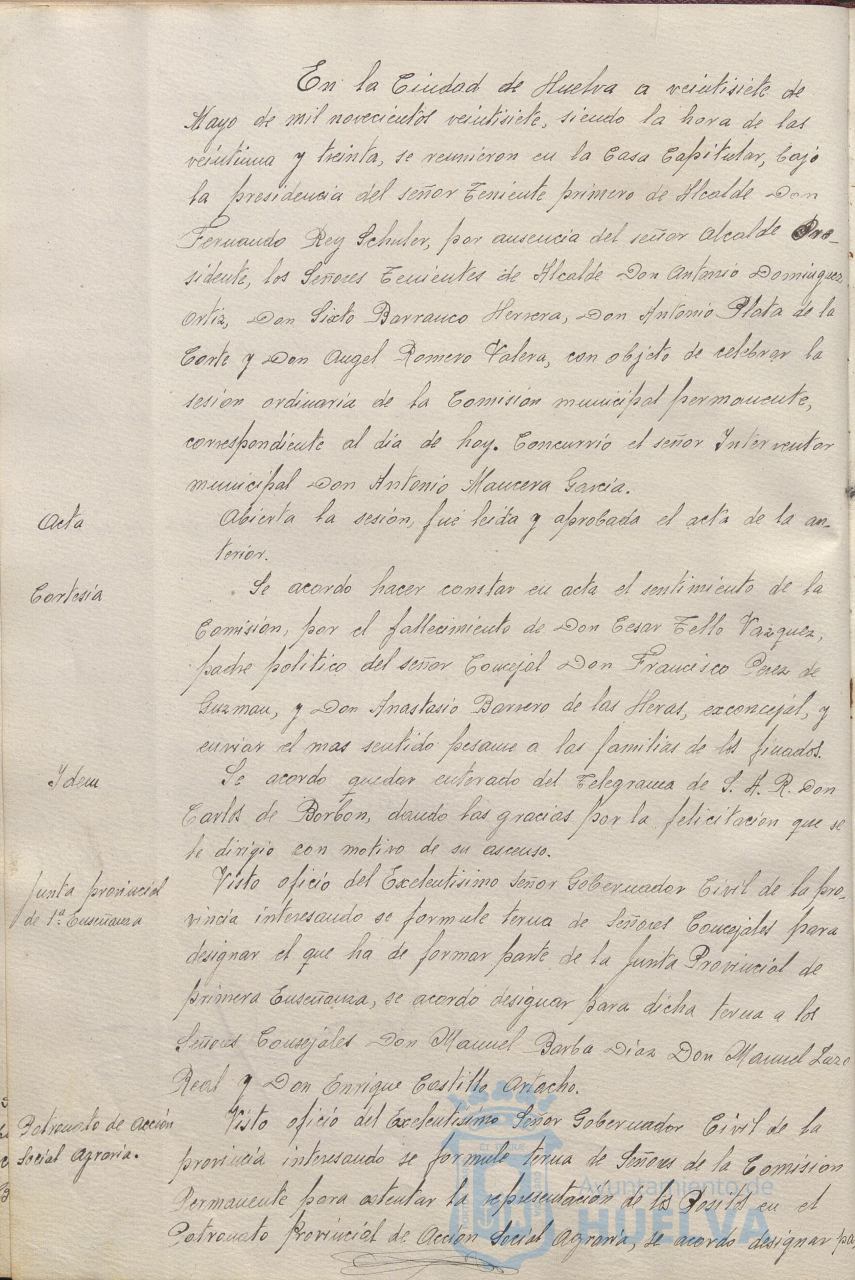 En la Ciudad de Huelva a veintisiete de
Mayo de mil novecientos veintisiete, siendo la hora de las
veintiuna y treinta, se reunieron en la Casa Capitular, bajo
la presidencia del señor Teniente primero de Alcalde Don
Fernando Rey Schuler, por ausencia del señor Alcalde Pre-
sidente, los Señores Tenientes de Alcalde Don Antonio Dominguez
Ortiz, Don Sixto Barranco Herrera, Don Antonio Plata de la
Corte y Don Angel Romero Valera, con objeto de celebrar la
sesion ordinaria de la Comisión municipal permanente,
correspondiente al dia de hoy. Concurrió el señor Interventor
municipal Don Antonio Mancera Garcia.
Acta
Abierta la sesión, fué leida y aprobada el acta de la an-
terior.
Cortesia
Se acordo hacer constar en acta el sentimiento de la
Comision, por el fallecimiento de Don Cesar Tello Vazquez,
padre politico del señor Concejal Don Francisco Perez de
Guzman, y Don Anastasio Barrero de las Heras, exconcejal, y
enviar el mas sentido pesame a las familias de los finados.
Ydem
Se acordo quedar enterado del Telegrama de S. A. R. Don
Carlos de Borbon, dando las gracias por la felicitacion que se
le dirigio con motivo de su ascenso.
Junta provincial
de 1ª Enseñanza
Visto oficio del Excelentisimo Señor Gobernador Civil de la pro-
vincia interesando se formule terna de Señores Concejales para
designar el que ha de formar parte de la Junta Provincial de
primera Enseñanza, se acordo designar para dicha terna a los
Señores Consejales Don Manuel Barba Diaz Don Manuel Lazo
Real y Don Enrique Castillo Artacho.
Patronato de Acción
Social Agraria.
Visto oficio del Excelentisimo Señor Gobernador Civil de la
provincia interesando se formule terna de Señores de la Comision
Permanente para ostentar la representacion de los Positos en el
Patronato Provincial de Accion Social Agraria, se acordo designar pa,
Ayuntamiento de
HUELVA